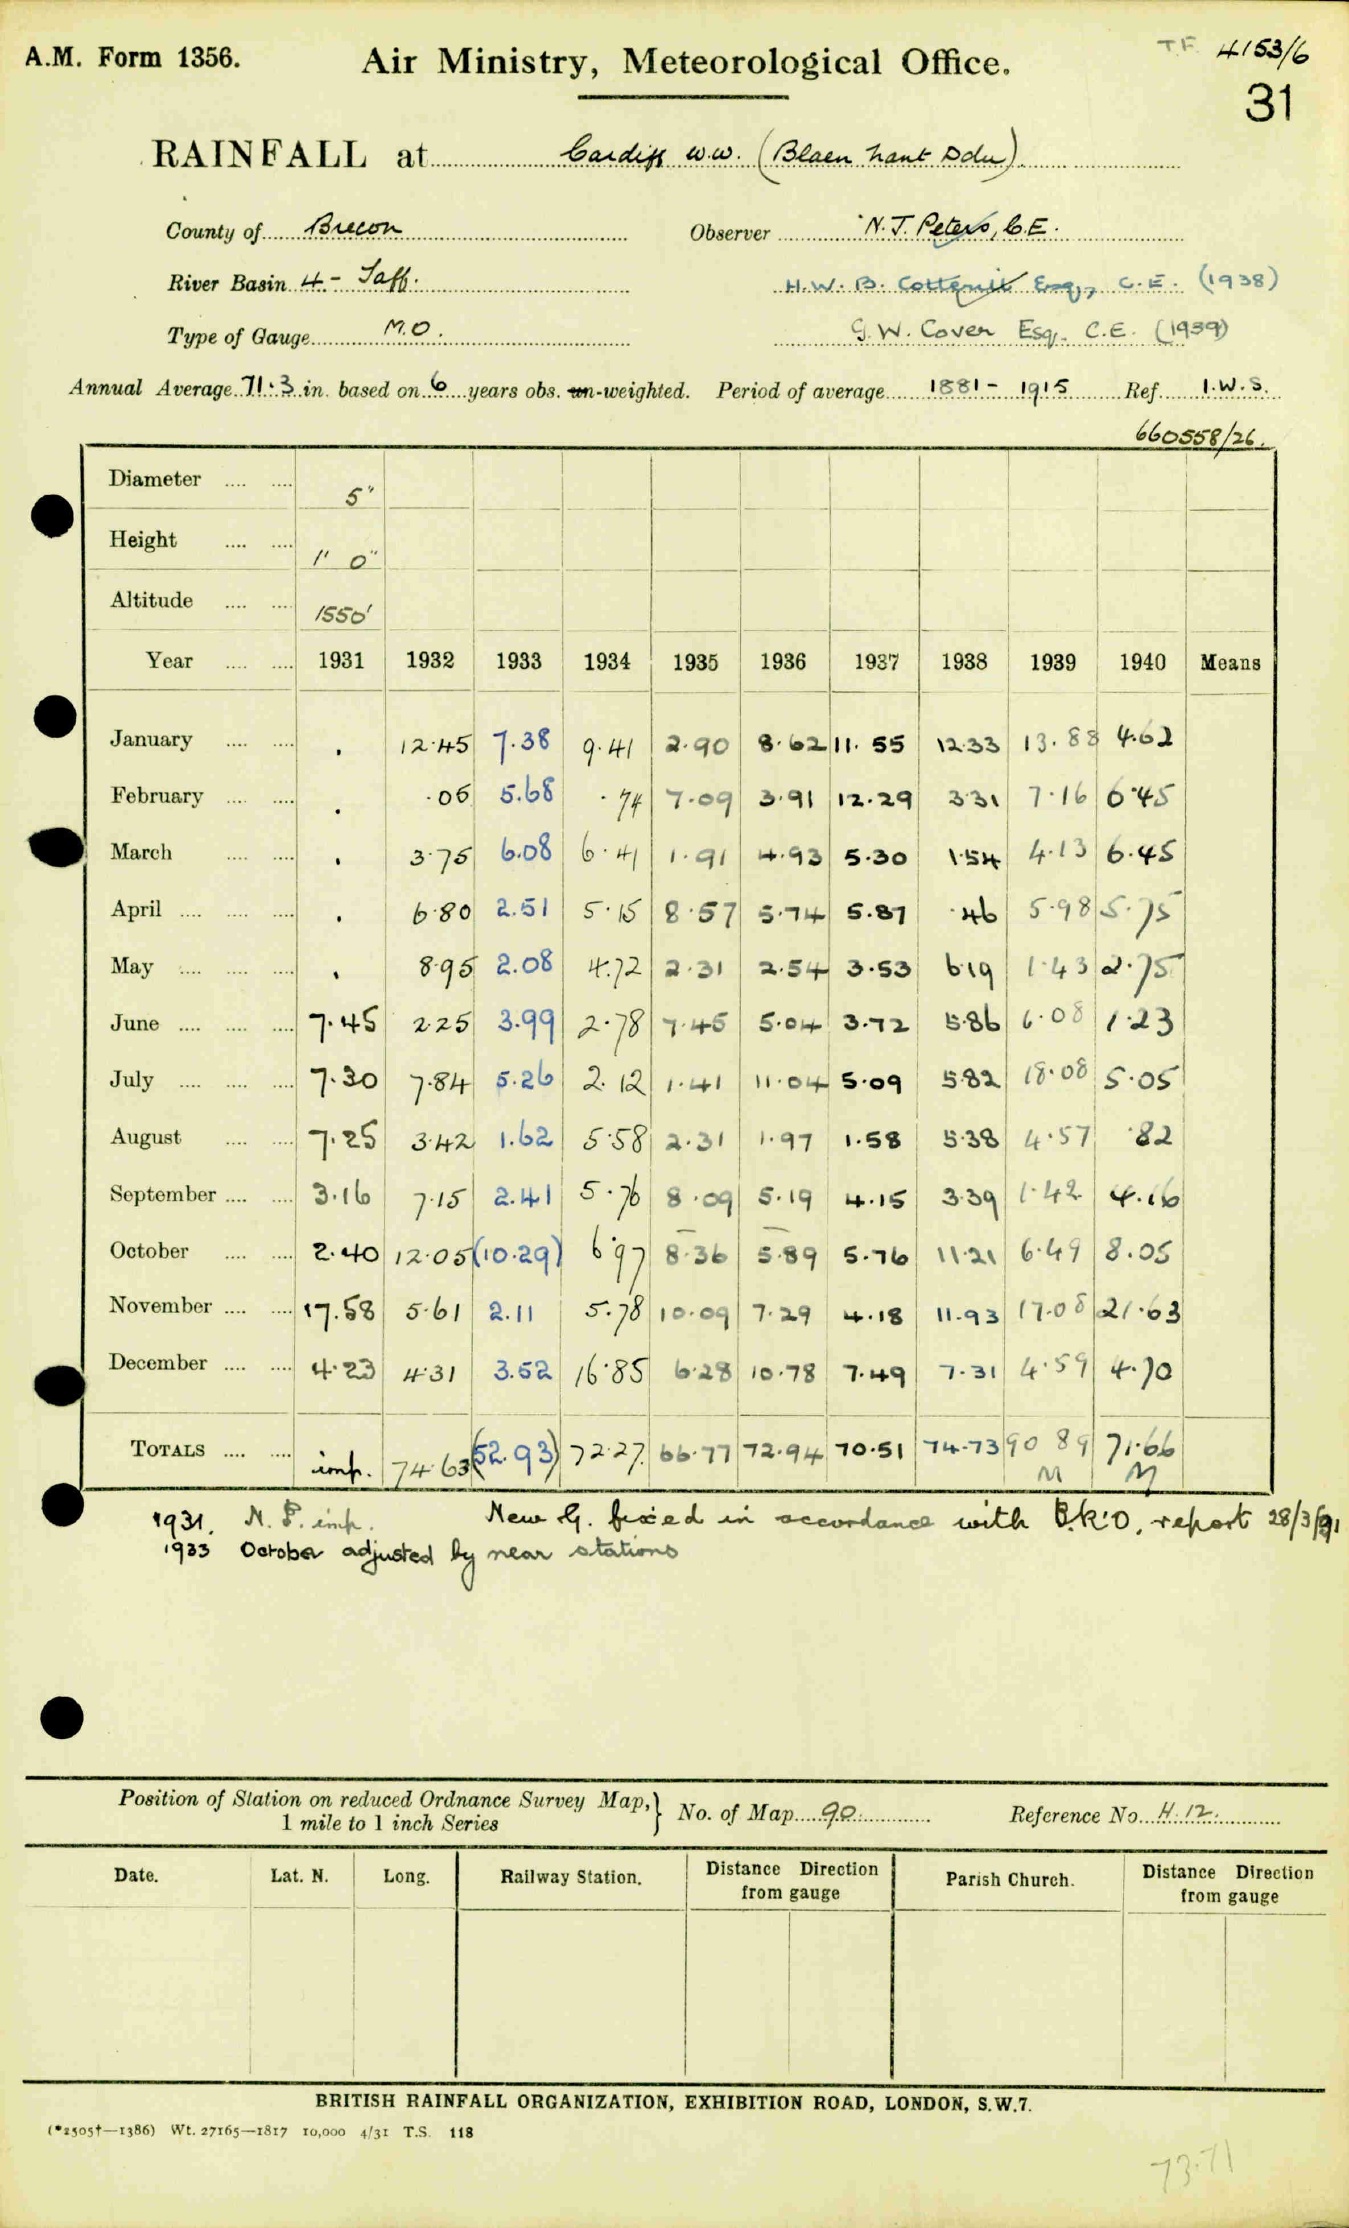 A.M. Form 1356. Air Ministry, Meteorological Office. T.F. 4153/6
31
RAINFALL at Cardiff W.W. (Blaen Nant Ddu)
County of Brecon Observer N. J. Peters, C.E.
River Basin 4 - Taff. H. W. B. Cotterill Esq., C.E. (1938)
Type of Gauge M.O. G. W. Cover Esq. C.E. (1939)
Annual Average 71.3 in. based on 6 years obs. un-weighted. Period of average 1881 - 1915 Ref. I.W.S.
660558/26.
Diameter .... .... 5"
Height .... .... 1' 0"
Altitude .... .... 1550'
Year .... .... 1931 1932 1933 1934 1935 1936 1937 1938 1939 1940 Means
January .... .... . 12.45 7.38 9.41 2.90 8.62 11.55 12.33 13.88 4.62
February .... .... . .06 5.68 .74 7.09 3.91 12.29 3.31 7.16 6.45
March .... .... . 3.75 6.08 6.41 1.91 4.93 5.30 1.54 4.13 6.45
April .... .... .... . 6.80 2.51 5.15 8.57 5.74 5.87 .46 5.98 5.75
May .... .... .... . 8.95 2.08 4.72 2.31 2.54 3.53 6.19 1.43 2.75
June .... .... .... 7.45 2.25 3.99 2.78 7.45 5.04 3.72 5.86 6.08 1.23
July .... .... .... 7.30 7.84 5.26 2.12 1.41 11.04 5.09 5.82 18.08 5.05
August .... .... 7.25 3.42 1.62 5.58 2.31 1.97 1.58 5.38 4.57 .82
September .... .... 3.16 7.15 2.41 5.76 8.09 5.19 4.15 3.39 1.42 4.16
October .... .... 2.40 12.05 (10.29) 6.97 8.36 5.89 5.76 11.21 6.49 8.05
November .... .... 17.58 5.61 2.11 5.78 10.09 7.29 4.18 11.93 17.08 21.63
December .... .... 4.23 4.31 3.52 16.85 6.28 10.78 7.49 7.31 4.59 4.70
TOTALS .... .... imp. 74.63 (52.93) 72.27 66.77 72.94 70.51 74.73 90 89 71.66
M M
1931. N. P. imp. New G. fixed in accordance with B.R.O. report 28/3/31
1933 October adjusted by near stations
Position of Station on reduced Ordnance Survey Map, } No. of Map 90 Reference No. H.12.
1 mile to 1 inch Series
Date. Lat. N. Long. Railway Station. Distance Direction Parish Church. Distance Direction
from gauge from gauge
BRITISH RAINFALL ORGANIZATION, EXHIBITION ROAD, LONDON, S.W.7.
(*2505†—1386) Wt. 27165—1817 10,000 4/31 T.S. 118
73.71